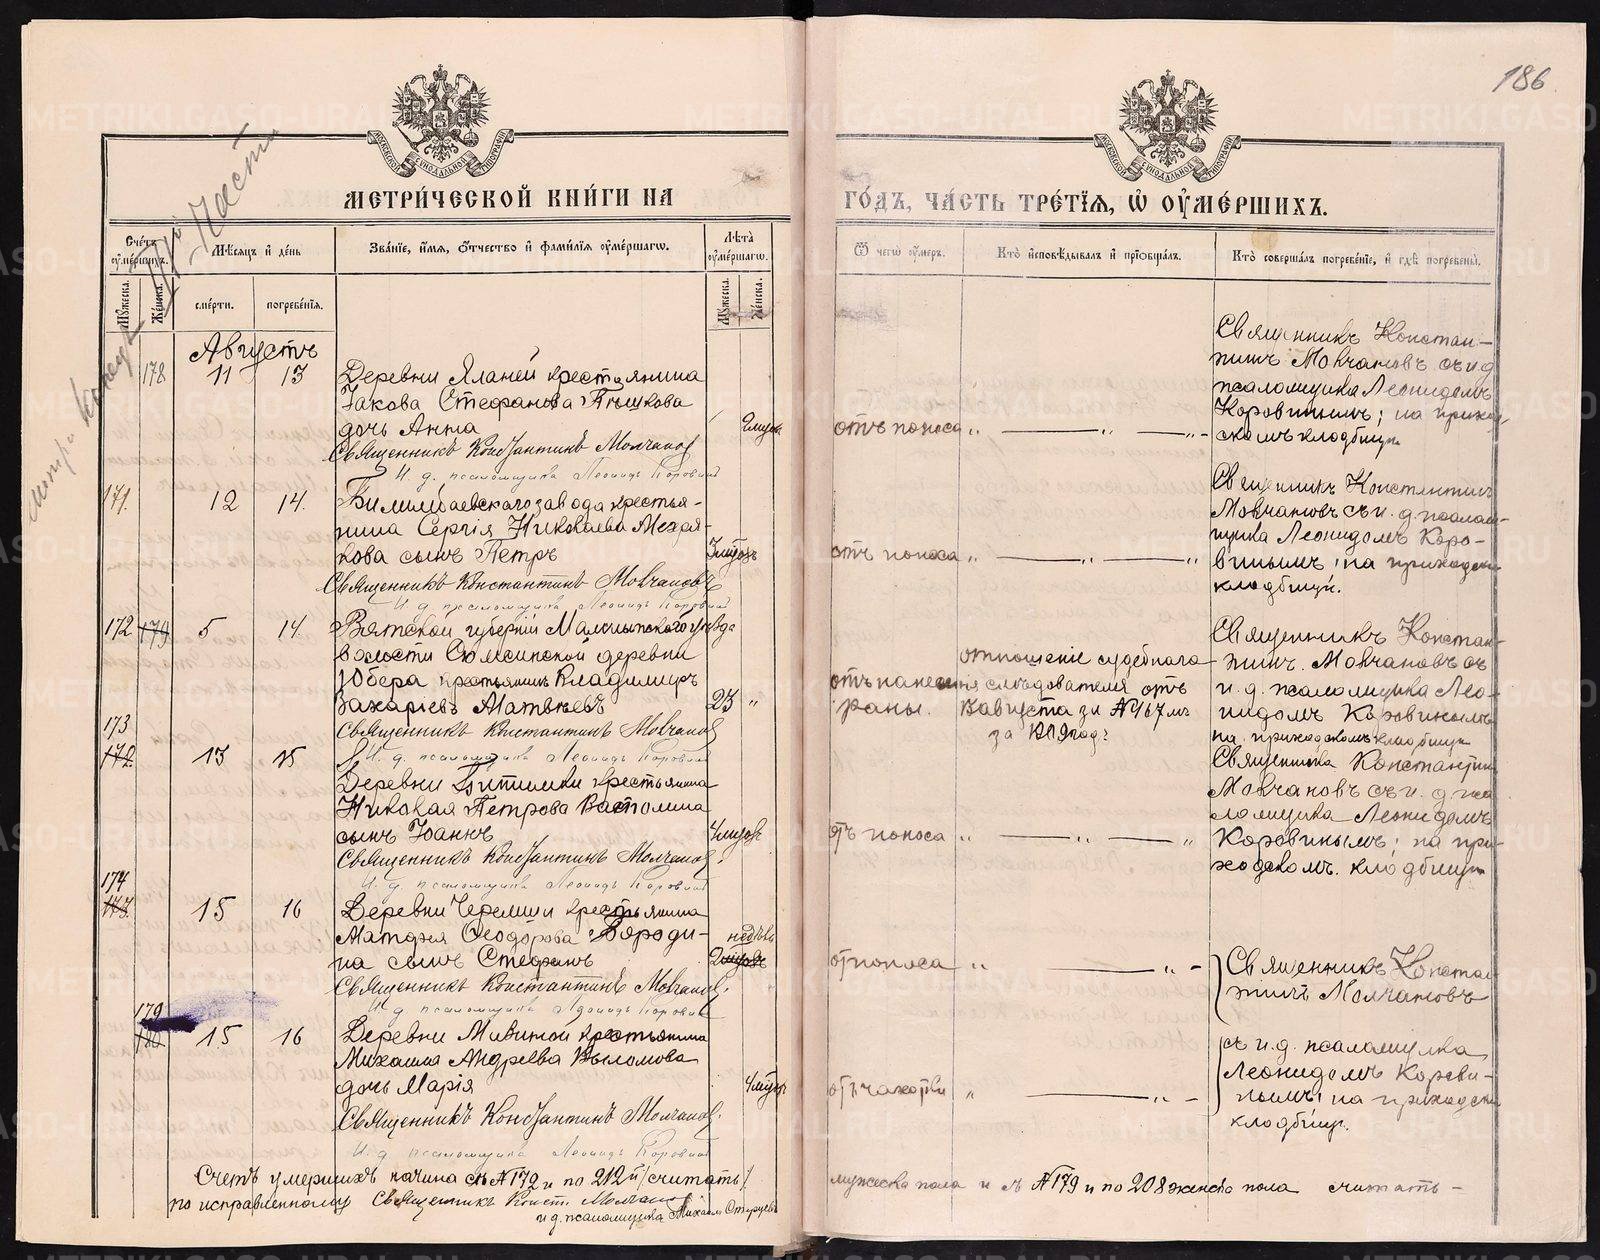 186
МЕТРИ́ЧЕСКОЙ КНИ́ГИ НА
ГО́ДЪ, ЧА́СТЬ ТРЕ́ТІЯ, Ѽ ОУМЕ́РШИХЪ.
Сче́тъ оуме́ршихъ.
Мѣ́сяцъ и день
Зва́ніе, и́мя, ѻ́тчество и фами́лія оуме́ршагѡ.
Лѣта̀ оуме́ршагѡ.
Ѿ чегѡ̀ оу́меръ.
Кто̀ и҆сповѣ́дывалъ и҆ прїѡбща́лъ.
Кто̀ соверша́лъ погребе́ніе, и҆ гдѣ̀ погребены̀.
Мꙋжеска.
Же́нска.
сме́рти.
погребе́нія.
Мꙋжеска.
Же́нска.
Августъ
178 11 13 Деревни Яланей крестьянина
Іакова Стефанова Пѣшкова
дочь Анна
Священникъ Константинъ Молчановъ
И. д. псаломщика Леонидъ Коровинъ
отъ поноса
Священникъ Констан-
тинъ Молчановъ съ и д
псаломщика Леонидомъ
Коровинымъ; на приход-
скомъ кладбищѣ
171. 12 14. Билимбаевскаго завода крестья-
нина Сергія Николаева Мехря-
кова сынъ Петръ
Священникъ Константинъ Молчановъ
И. д. псаломщика Леонидъ Коровинъ
отъ поноса
Священникъ Константинъ
Молчановъ съ и. д. псалом-
щика Леонидомъ Коро-
винымъ; на приходск.
кладбищѣ.
172 179 5 14. Вятской губерніи Малмыжскаго уѣзда
волости Сюмсинской деревни
Юбера крестьянинъ Владимиръ
Захаріевъ Матвѣевъ
23 "
Священникъ Константинъ Молчановъ
И. д. псаломщика Леонидъ Коровинъ
отъ нанесенія
раны.
отношеніе судебнаго
слѣдователя отъ
8 августа за № 1167 мъ
за 1909 год:
Священникъ Констан-
тинъ Молчановъ съ
и. д. псаломщика Лео-
нидомъ Коровинымъ
на приходскомъ кладбищѣ
173
172. 13 15 Деревни Битимки крестьянина
Николая Петрова
сынъ Іоаннъ
Священникъ Константинъ Молчановъ
И. д. псаломщика Леонидъ Коровинъ
отъ поноса
Священника Константинъ
Молчановъ съ и. д. пса
ломщика Леонидомъ
Коровинымъ; на при-
ходскомъ. кладбищѣ
174
173. 15 16 Деревни Черемши крестьянина
Матфея Ѳеодорова Бороди-
на сынъ Стефанъ
недѣль
Священникъ Константинъ Молчановъ
И. д псаломщика Леонидъ Коровинъ
отъ поноса
Священникъ Констан-
тинъ Молчановъ
179
180. 15 16 Деревни крестьянина
Михаила Андреева
дочь Марія
Священникъ Константинъ Молчановъ
И. д псаломщика Леонидъ Коровинъ
отъ чахотки
съ и. д. псаломщика
Леонидомъ Корови-
нымъ; на приходск.
кладбищѣ.
Счетъ умершихъ начина съ № 172 и по 212 й (считать) мужеска пола и съ № 179 и по 208 женска пола считать -
по исправленному Священникъ Конст. Молчановъ
и. д. псаломщика Михаилъ